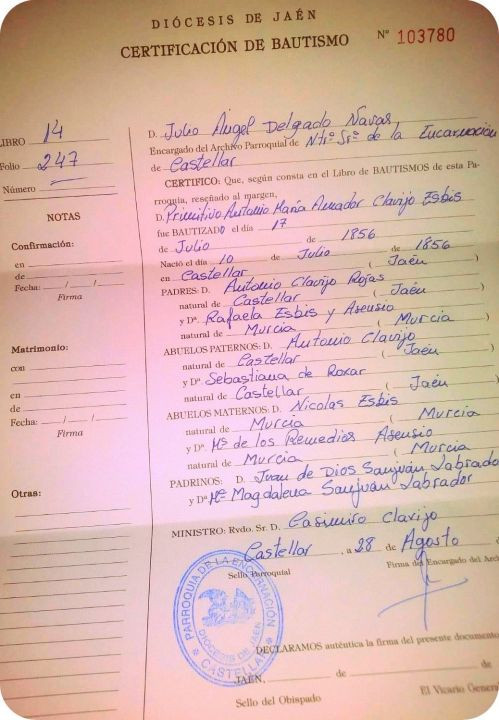 DIÓCESIS DE JAÉN
CERTIFICACIÓN DE BAUTISMO Nº 103780
LIBRO 14
Folio 247
Número
NOTAS
Confirmación:
en
de
Fecha: / /
Firma
Matrimonio:
con
en
de
Fecha: / /
Firma
Otras:
D. Julio Ángel Delgado Navas
Encargado del Archivo Parroquial de Ntrª Srª de la Encarnación
de Castellar
CERTIFICO: Que, según consta en el Libro de BAUTISMOS de esta Pa-
rroquia, reseñado al margen,
D. Primitivo Antonio María Amador Clavijo Esbis
fue BAUTIZADO el día 17
de Julio de 1856
Nació el día 10 de Julio de 1856
en Castellar ( Jaén )
PADRES: D. Antonio Clavijo Rojas
natural de Castellar ( Jaén )
y Dª Rafaela Esbis y Asensio
natural de Murcia ( Murcia )
ABUELOS PATERNOS: D. Antonio Clavijo
natural de Castellar ( Jaén )
y Dª Sebastiana de Roxar
natural de Castellar ( Jaén )
ABUELOS MATERNOS: D. Nicolas Esbis
natural de Murcia ( Murcia )
y Dª Mª de los Remedios Asensio
natural de Murcia ( Murcia )
PADRINOS: D. Juan de Dios Sanjuán Labrador
y Dª Mª Magdalena Sanjuán Labrador
MINISTRO: Rvdo. Sr. D. Casimiro Clavijo
Castellar, a 28 de Agosto de
Sello Parroquial
Firma del Encargado del Arch
PARROQUIA DE LA ENCARNACIÓN
DIÓCESIS DE JAÉN
CASTELLAR
DECLARAMOS auténtica la firma del presente documento
JAÉN, de de
Sello del Obispado
El Vicario Gener